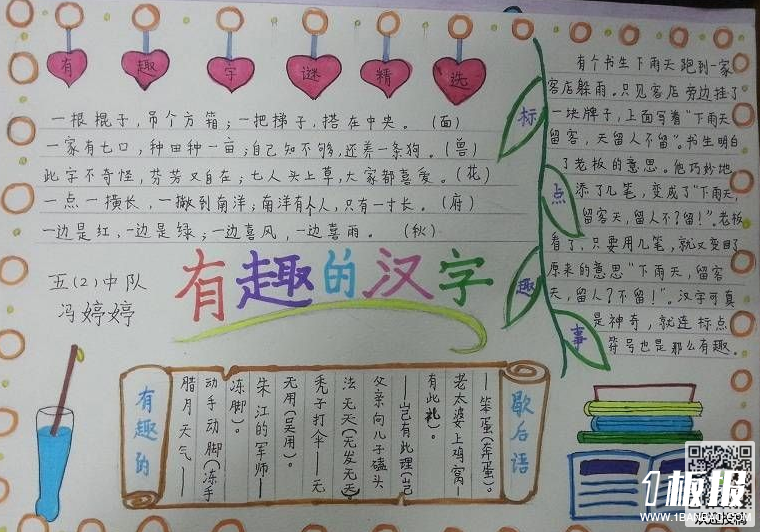 有趣字谜精选
一根棍子，吊个方箱；一把梯子，搭在中央。（面）
一家有七口，种田种一亩；自己知不够，还养一条狗。（兽）
此字不奇怪，芬芳又自在；七人头上草，大家都喜爱。（花）
一点一横长，一撇到南洋；南洋有个人，只有一寸长。（府）
一边是红，一边是绿；一边喜风，一边喜雨。（秋）
五(2)中队
冯婷婷
有趣的汉字
标点趣事
有个书生下雨天跑到一家
客店躲雨。只见客店旁边挂了
一块牌子，上面写着“下雨天
留客，天留人不留”。书生明白
了老板的意思。他巧妙地
添了几笔，变成了“下雨天，
留客天，留人不？留！”。老板
看了，只要用几笔，就又变回了
原来的意思“下雨天，留客
天，留人？不留！”。汉字可真
是神奇，就连标点
符号也是那么有趣。
有趣的
歇后语
老太婆上鸡窝—
—笨蛋(奔蛋)。
父亲向儿子磕头
——岂有此理(岂
有此礼)。
秃子打伞——无
法无天(无发无天)
朱江的军师——
无用(吴用)。
腊月天气——
动手动脚(冻手
冻脚)。
1板报
WWW.1BANBAO.COM